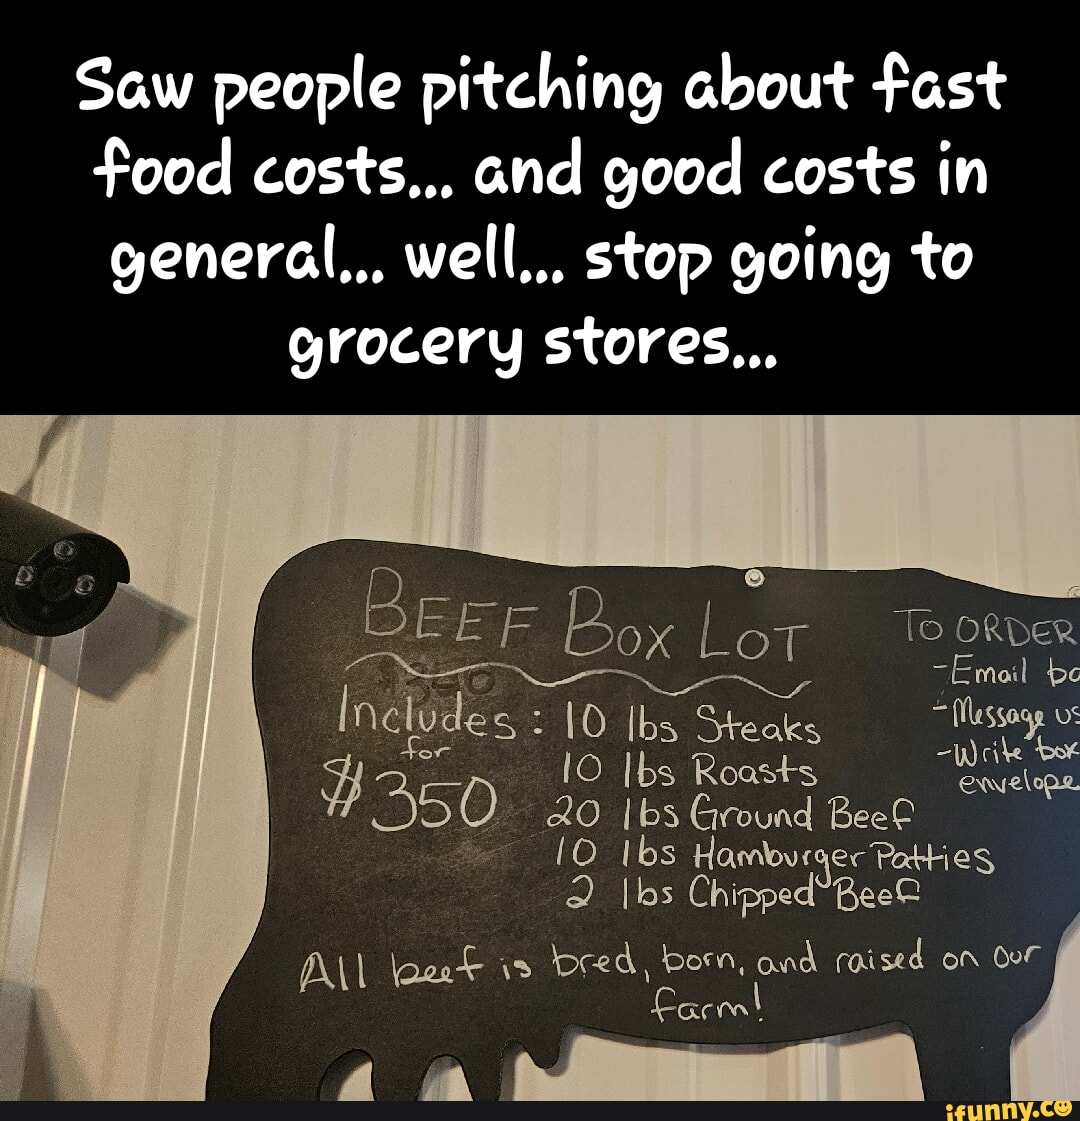 Saw people pitching about fast
food costs... and good costs in
general... well... stop going to
grocery stores...
BEEF BOX LOT
Includes: 10 lbs Steaks
for
$350
10 lbs Roasts
20 lbs Ground Beef
10 lbs Hamburger Patties
2 lbs Chipped Beef
All beef is bred, born, and raised on our
farm!
TO ORDER
-Email
-Message us
-Write box
envelope
ifunny.co